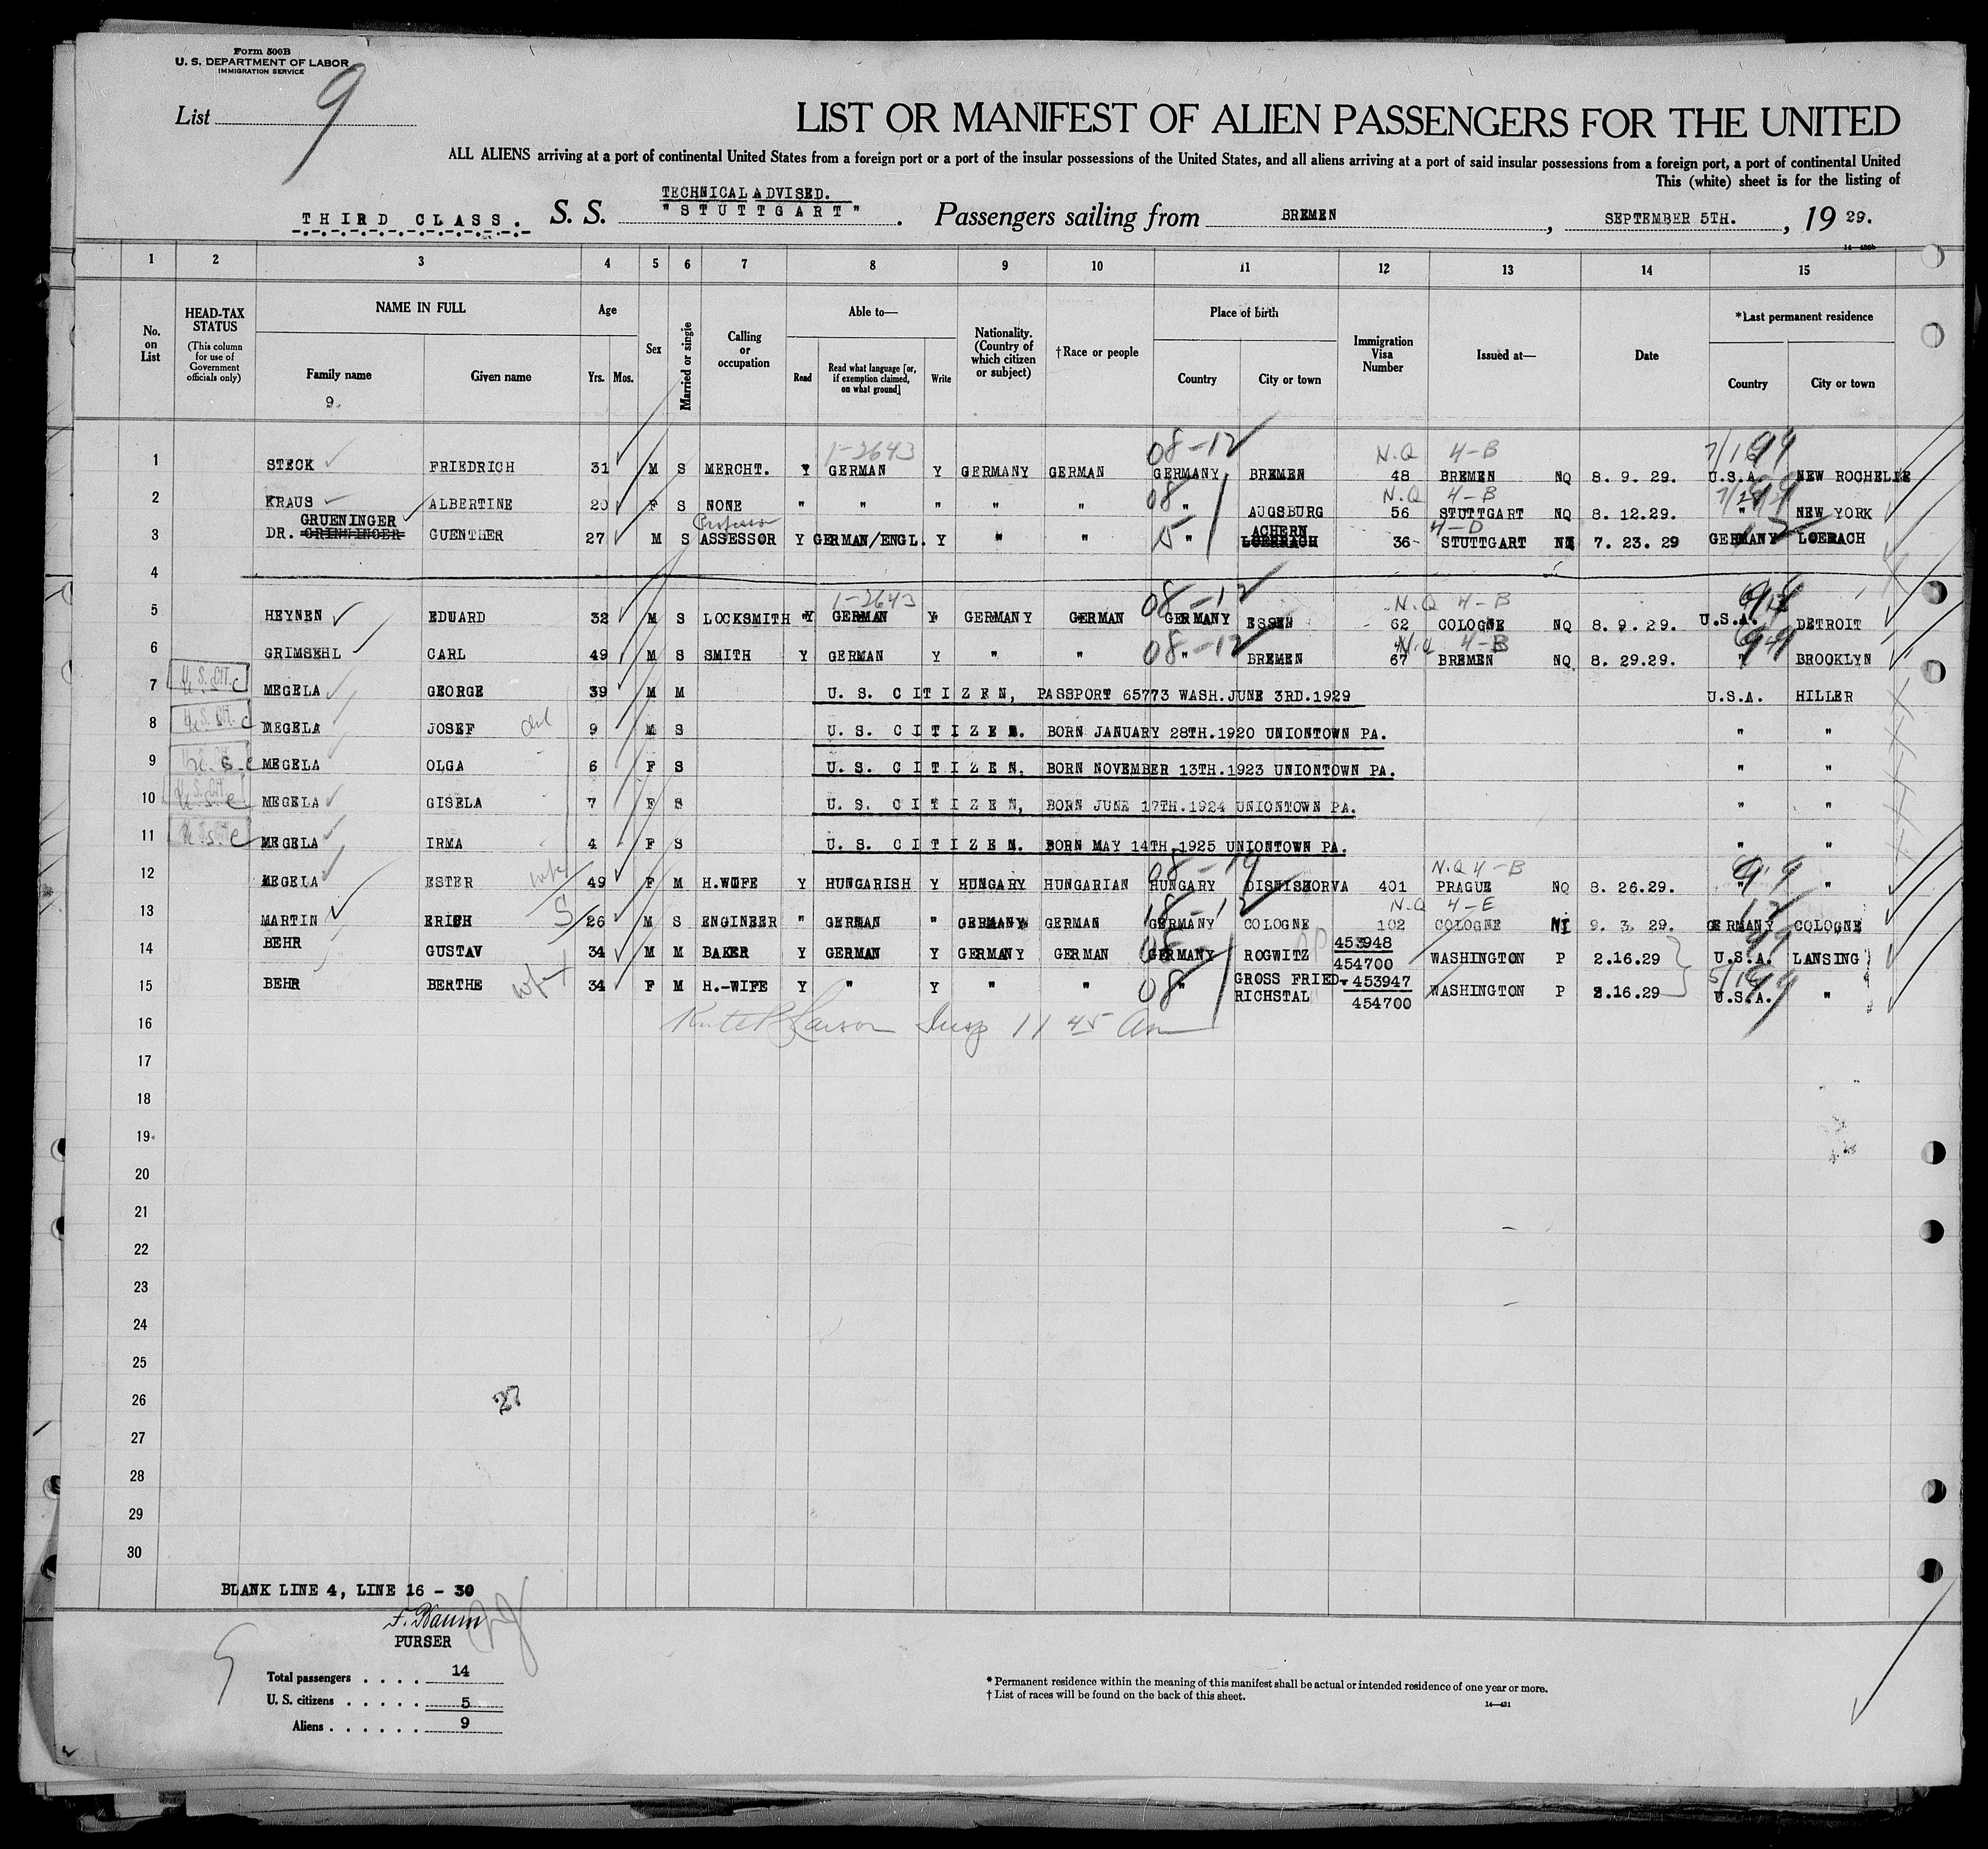 Form 500B
U. S. DEPARTMENT OF LABOR
IMMIGRATION SERVICE
List 9
LIST OR MANIFEST OF ALIEN PASSENGERS FOR THE UNITED
ALL ALIENS arriving at a port of continental United States from a foreign port or a port of the insular possessions of the United States, and all aliens arriving at a port of said insular possessions from a foreign port, a port of continental United
This (white) sheet is for the listing of
TECHNICAL ADVISED.
THIRD CLASS. S. S. "STUTTGART". Passengers sailing from BREMEN, SEPTEMBER 5TH., 19 29.
1 2 3 4 5 6 7 8 9 10 11 12 13 14 15
No. on List
HEAD-TAX STATUS
(This column for use of Government officials only)
NAME IN FULL
Family name Given name
9.
Age
Yrs. Mos.
Sex
Married or single
Calling or occupation
Able to—
Read
Read what language [or, if exemption claimed, on what ground]
Write
Nationality. (Country of which citizen or subject)
†Race or people
Place of birth
Country City or town
Immigration Visa Number
Issued at—
Date
*Last permanent residence
Country City or town
1-2643 08-12 N.Q 4-B
1 STECK FRIEDRICH 31 M S MERCHT. Y GERMAN Y GERMANY GERMAN GERMANY BREMEN 48 BREMEN NQ 8. 9. 29. U.S.A. NEW ROCHELLE
08 N.Q 4-B
2 KRAUS ALBERTINE 20 F S NONE " " " " " " AUGSBURG 56 STUTTGART NQ 8.12.29. " NEW YORK
GRUENINGER Professor ACHERN 4-D
3 DR. GRINNINGER GUENTHER 27 M S ASSESSOR Y GERMAN/ENGL. Y " " 15 " LOERRACH 36 STUTTGART NI 7. 23. 29 GERMANY LOERACH
4
1-2643 08-12 N.Q 4-B
5 HEYNEN EDUARD 32 M S LOCKSMITH Y GERMAN Y GERMANY GERMAN GERMANY ESSEN 62 COLOGNE NQ 8. 9. 29. U.S.A. DETROIT
08-12 N.Q 4-B
6 GRIMSEHL CARL 49 M S SMITH Y GERMAN Y " " " BREMEN 67 BREMEN NQ 8. 29.29. " BROOKLYN
7 U.S.C MEGELA GEORGE 39 M M U. S. CITIZEN, PASSPORT 65773 WASH.JUNE 3RD.1929 U.S.A. HILLER
8 U.S.C MEGELA JOSEF 9 M S U. S. CITIZEN. BORN JANUARY 28TH.1920 UNIONTOWN PA. " "
9 U.S.C MEGELA OLGA 6 F S U. S. CITIZEN. BORN NOVEMBER 13TH.1923 UNIONTOWN PA. " "
10 U.S.C MEGELA GISELA 7 F S U. S. CITIZEN, BORN JUNE 17TH.1924 UNIONTOWN PA. " "
11 U.S.C MEGELA IRMA 4 F S U. S. CITIZEN. BORN MAY 14TH.1925 UNIONTOWN PA. " "
wife N.Q 4-B
12 MEGELA ESTER 49 F M H.WIFE Y HUNGARISH Y HUNGARY HUNGARIAN HUNGARY 401 PRAGUE NQ 8. 26.29. " "
S N.Q 4-E
13 MARTIN ERICH 26 M S ENGINEER " GERMAN " GERMANY GERMAN GERMANY COLOGNE 102 COLOGNE NI 9. 3. 29. GERMANY COLOGNE
14 BEHR GUSTAV 34 M M BAKER Y GERMAN Y GERMANY GERMAN GERMANY ROGWITZ 453948 454700 WASHINGTON P 2.16.29 U.S.A. LANSING
15 BEHR BERTHE wife 34 F M H.-WIFE Y " Y " " 08 " GROSS FRIED-RICHSTAL 453947 454700 WASHINGTON P 2.16.29 U.S.A. "
16 Insp 11 45 Am
17
18
19
20
21
22
23
24
25
26 27
27
28
29
30
BLANK LINE 4, LINE 16 - 30
F. Baum
PURSER
9
Total passengers . . . . 14
U. S. citizens . . . . . 5
Aliens . . . . . . 9
* Permanent residence within the meaning of this manifest shall be actual or intended residence of one year or more.
† List of races will be found on the back of this sheet.
14—431